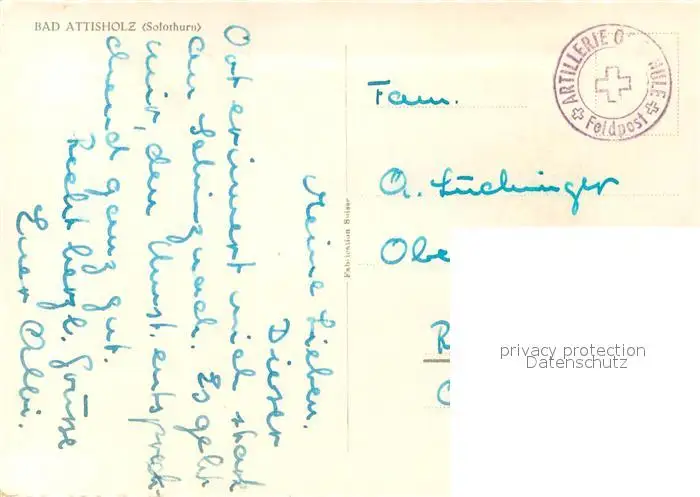 BAD ATTISHOLZ (Solothurn)
Meine Lieben.
Dieser
Ort erinnert mich stark
an Schinznach. Es geht
mir, den Umst. entsprech-
chend ganz gut.
Recht herzl. Grüsse
Euer Albi.
Fabrication Suisse
ARTILLERIE O ULE
Feldpost
Fam.
A. Luchsinger
Obe
R
privacy protection
Datenschutz